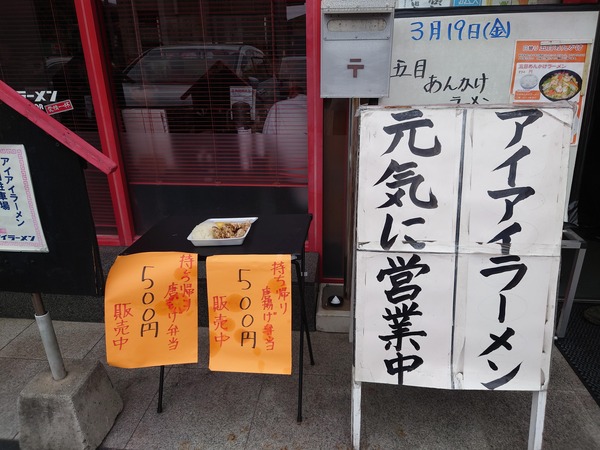 3月19日(金)
五目あんかけ
ラーメン
アイアイラーメン
元気に営業中
持ち帰り
唐揚げ弁当
500円
販売中
持ち帰り
唐揚げ弁当
500円
販売中
ラーメン
アイアイラーメン
駐車場